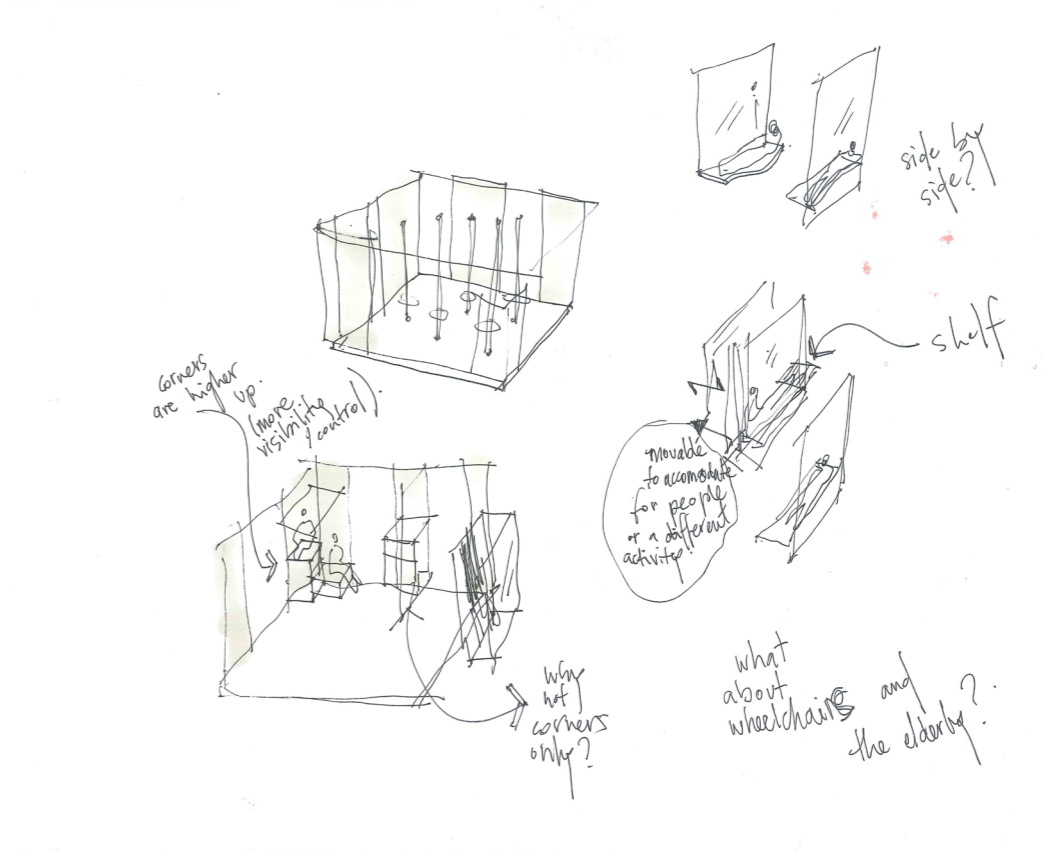 side by
side?
shelf
corners
are higher
up.
(more
visibility
+ control).
movable
to accomodate
for people
or a different
activity
why
not
corners
only?
what
about
wheelchairs and
the elderly?